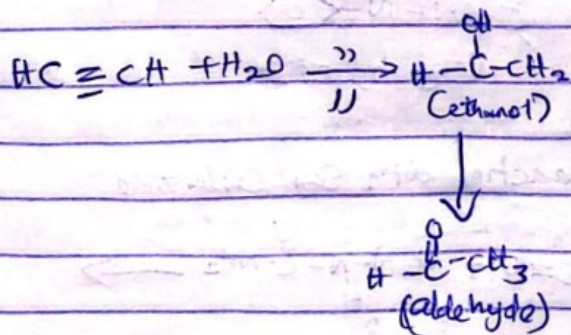 OH
HC≡CH + H2O → H-C-CH2
(ethanol)
O
H-C-CH3
(aldehyde)